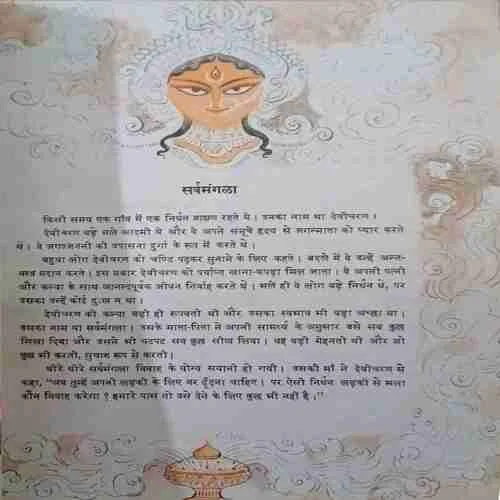 सर्वमंगला
किसी समय एक गाँव में एक निर्धन ब्राह्मण रहते थे। उनका नाम था देवीचरण।
देवीचरण बड़े भले आदमी थे और वे अपने समूचे हृदय से जगन्माता को प्यार करते
थे। वे जगज्जननी की उपासना दुर्गा के रूप में करते थे।
बहुधा लोग देवीचरण को चण्डि पढ़कर सुनाने के लिए कहते। बदले में वे उन्हें अन्न-
वस्त्र प्रदान करते। इस प्रकार देवीचरण को पर्याप्त खाना-कपड़ा मिल जाता। वे अपनी पत्नी
और कन्या के साथ आनन्दपूर्वक जीवन निर्वाह करते थे। भले ही वे लोग बड़े निर्धन थे, पर
उसका उन्हें कोई दुःख न था।
देवीचरण की कन्या बड़ी ही रूपवती थी और उसका स्वभाव भी बड़ा अच्छा था।
उसका नाम था सर्वमंगला। उसके माता-पिता ने अपनी सामर्थ्य के अनुसार उसे सब कुछ
सिखा दिया और उसने भी चटपट सब कुछ सीख लिया। वह बड़ी मेहनती थी और जो
कुछ भी करती, सुचारु रूप से करती।
धीरे धीरे सर्वमंगला विवाह के योग्य सयानी हो गयी। उसकी माँ ने देवीचरण से
कहा, "अब तुम्हें अपनी लड़की के लिए वर ढूँढ़ना चाहिए। पर ऐसी निर्धन लड़की से भला
कौन विवाह करेगा? हमारे पास तो उसे देने के लिए कुछ भी नहीं है।"